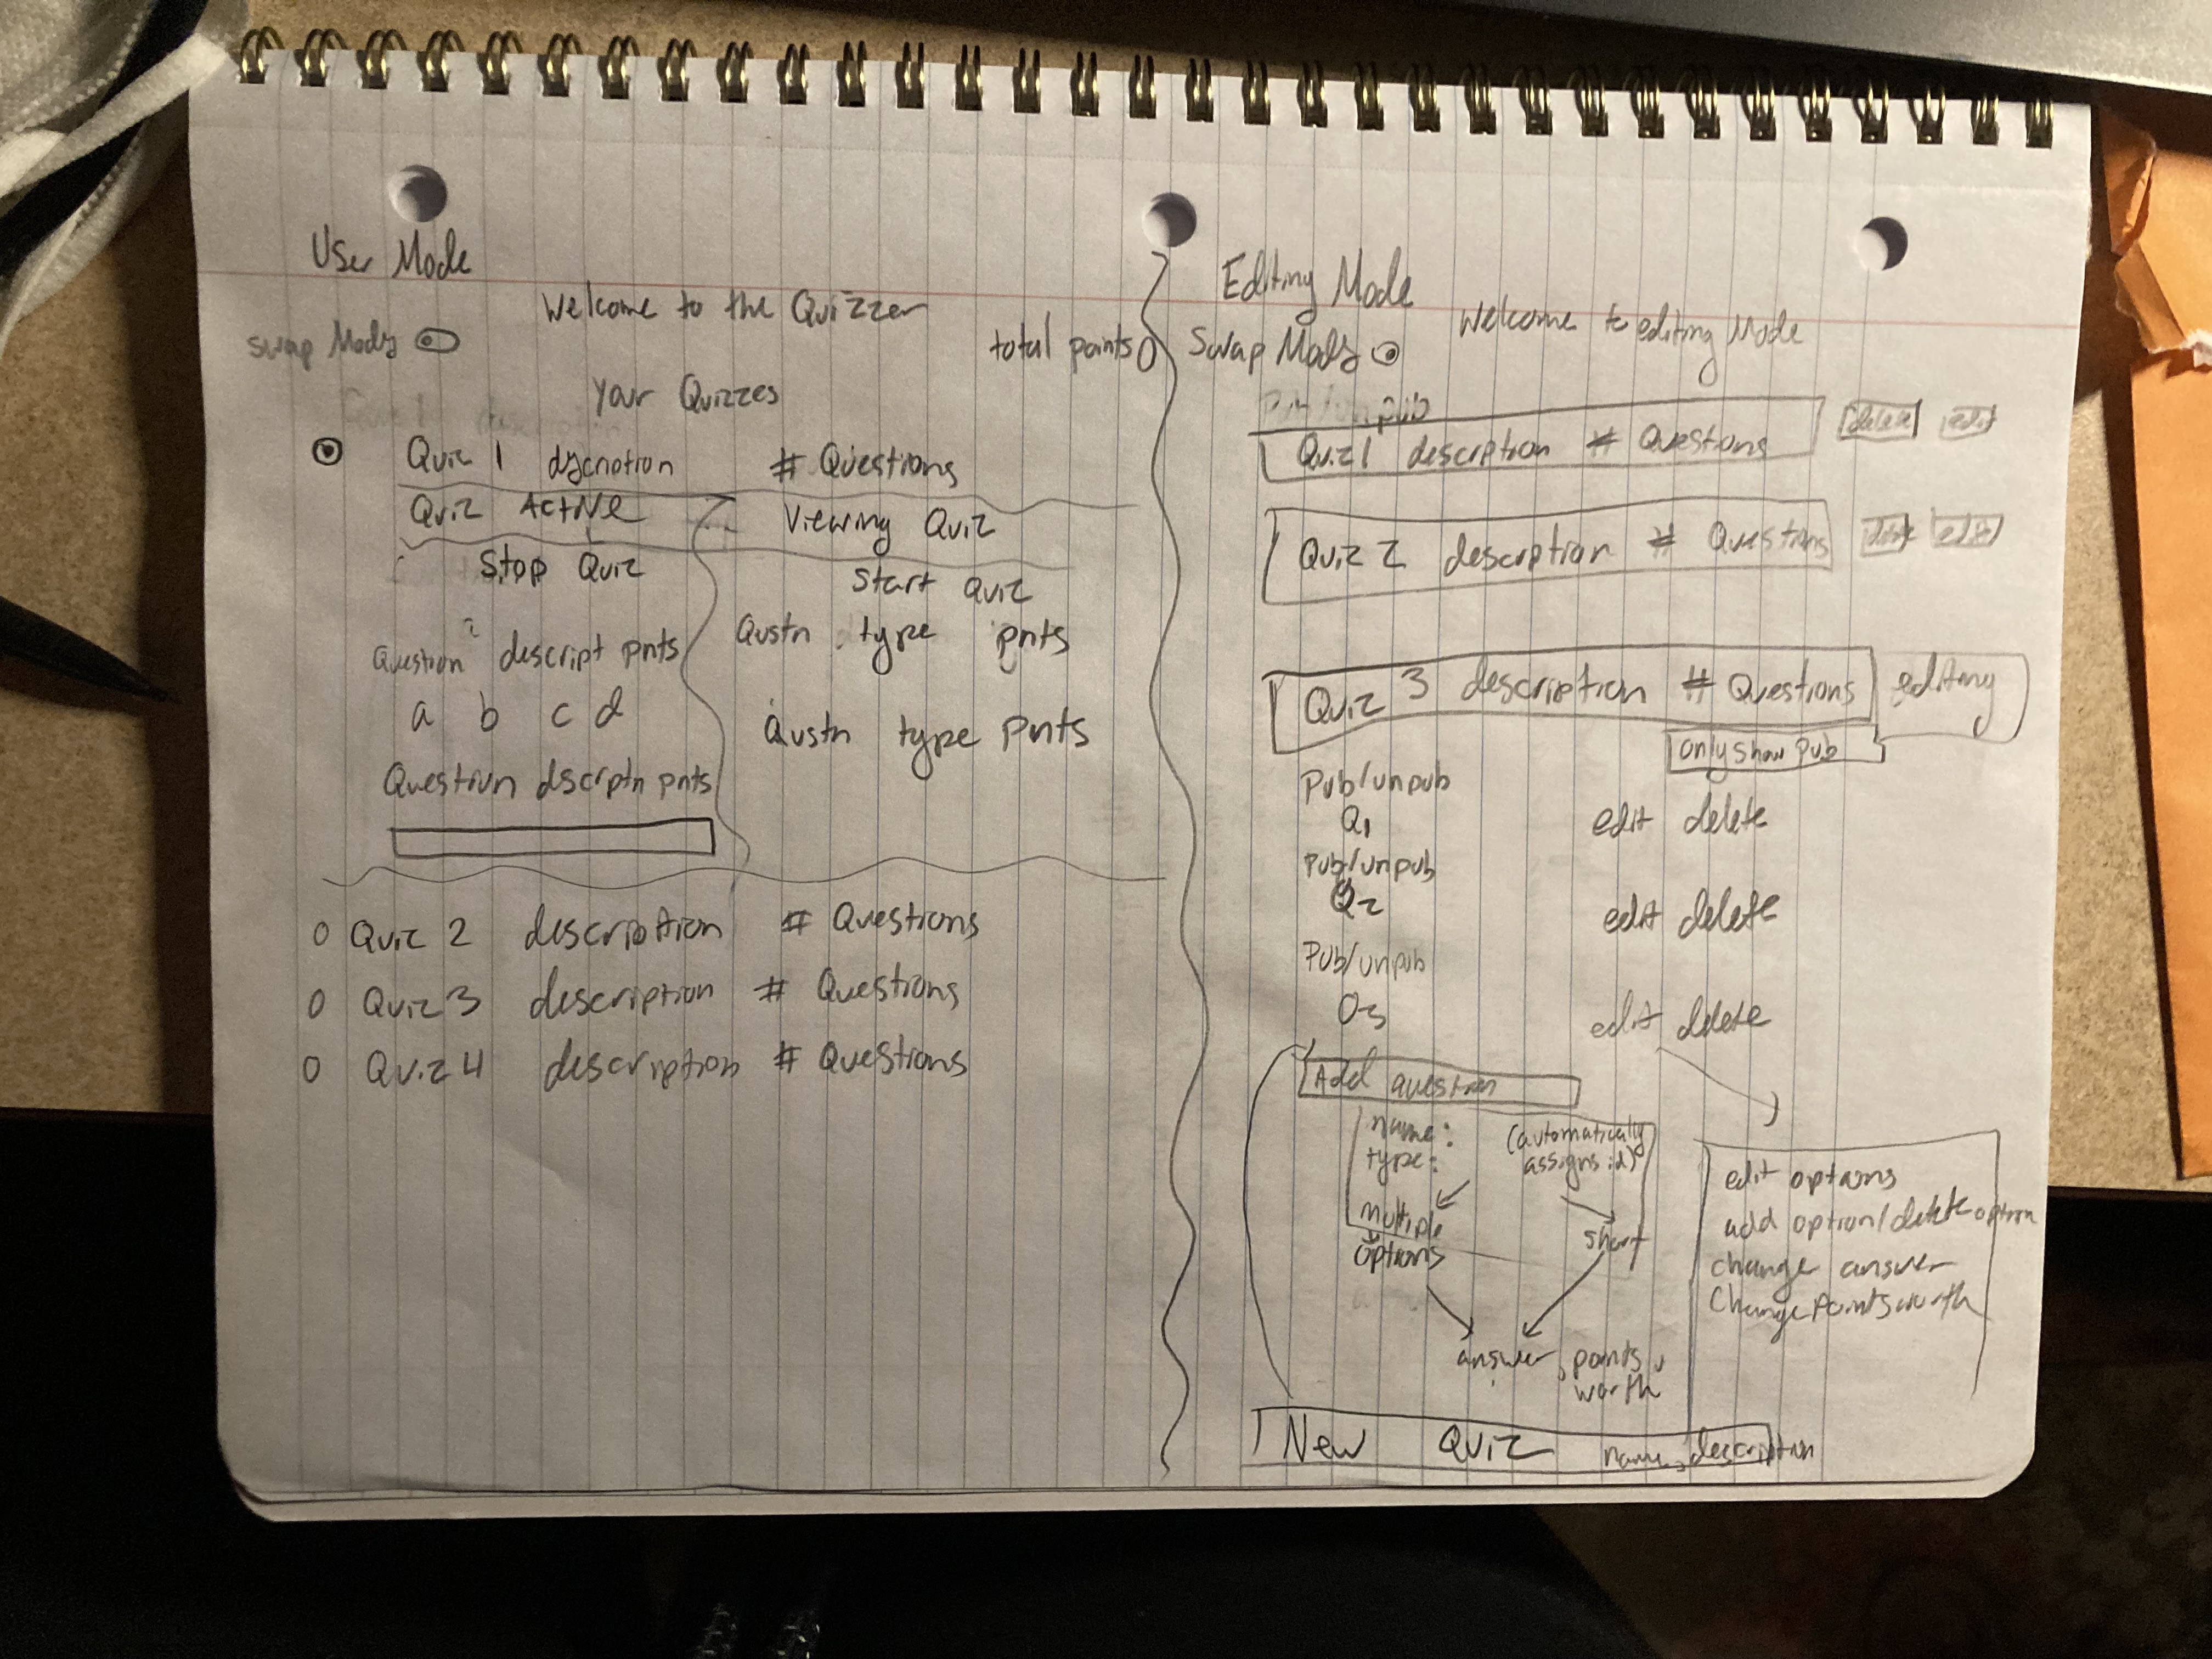 User Mode
Welcome to the Quizzer
Swap Mods
total points 0
Your Quizzes
Quiz 1 # Questions
Quiz Active
Viewing Quiz
Stop Quiz
Start Quiz
Question ? descript pnts
Qustn type pnts
a b c d
Qustn type pnts
Question dscrptn pnts
O Quiz 2 description # Questions
O Quiz 3 description # Questions
O Quiz 4 description # Questions
Editing Mode
Welcome to editing Mode
Swap Mods
Pub/unpub
Quiz 1 description # Questions
delete edit
Quiz 2 description # Questions
delete edit
Quiz 3 description # Questions
editing
only show pub
Pub/unpub
Q1 edit delete
Pub/unpub
Q2 edit delete
Pub/unpub
Q3 edit delete
Add question
name:
type:
(automatically
assigns id)
multiple
options
short
answer, points,
worth
edit options
add option/delete option
change answer
Change Points worth
New Quiz name, description